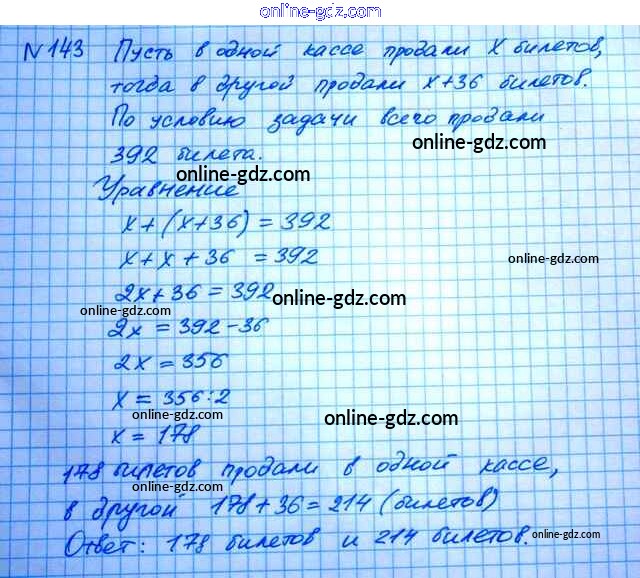 online-gdz.com
N143 Пусть в одной кассе продали x билетов,
тогда в другой продали x+36 билетов.
По условию задачи всего продали
online-gdz.com
392 билета.
online-gdz.com
Уравнение
x+(x+36) = 392
online-gdz.com
x+x+36 = 392
online-gdz.com
2x+36 = 392
online-gdz.com
online-gdz.com
2x = 392-36
2x = 356
x = 356:2
online-gdz.com
online-gdz.com
x = 178
178 билетов продали в одной кассе,
online-gdz.com
в другой 178+36=214 (билетов)
Ответ: 178 билетов и 214 билетов.
online-gdz.com